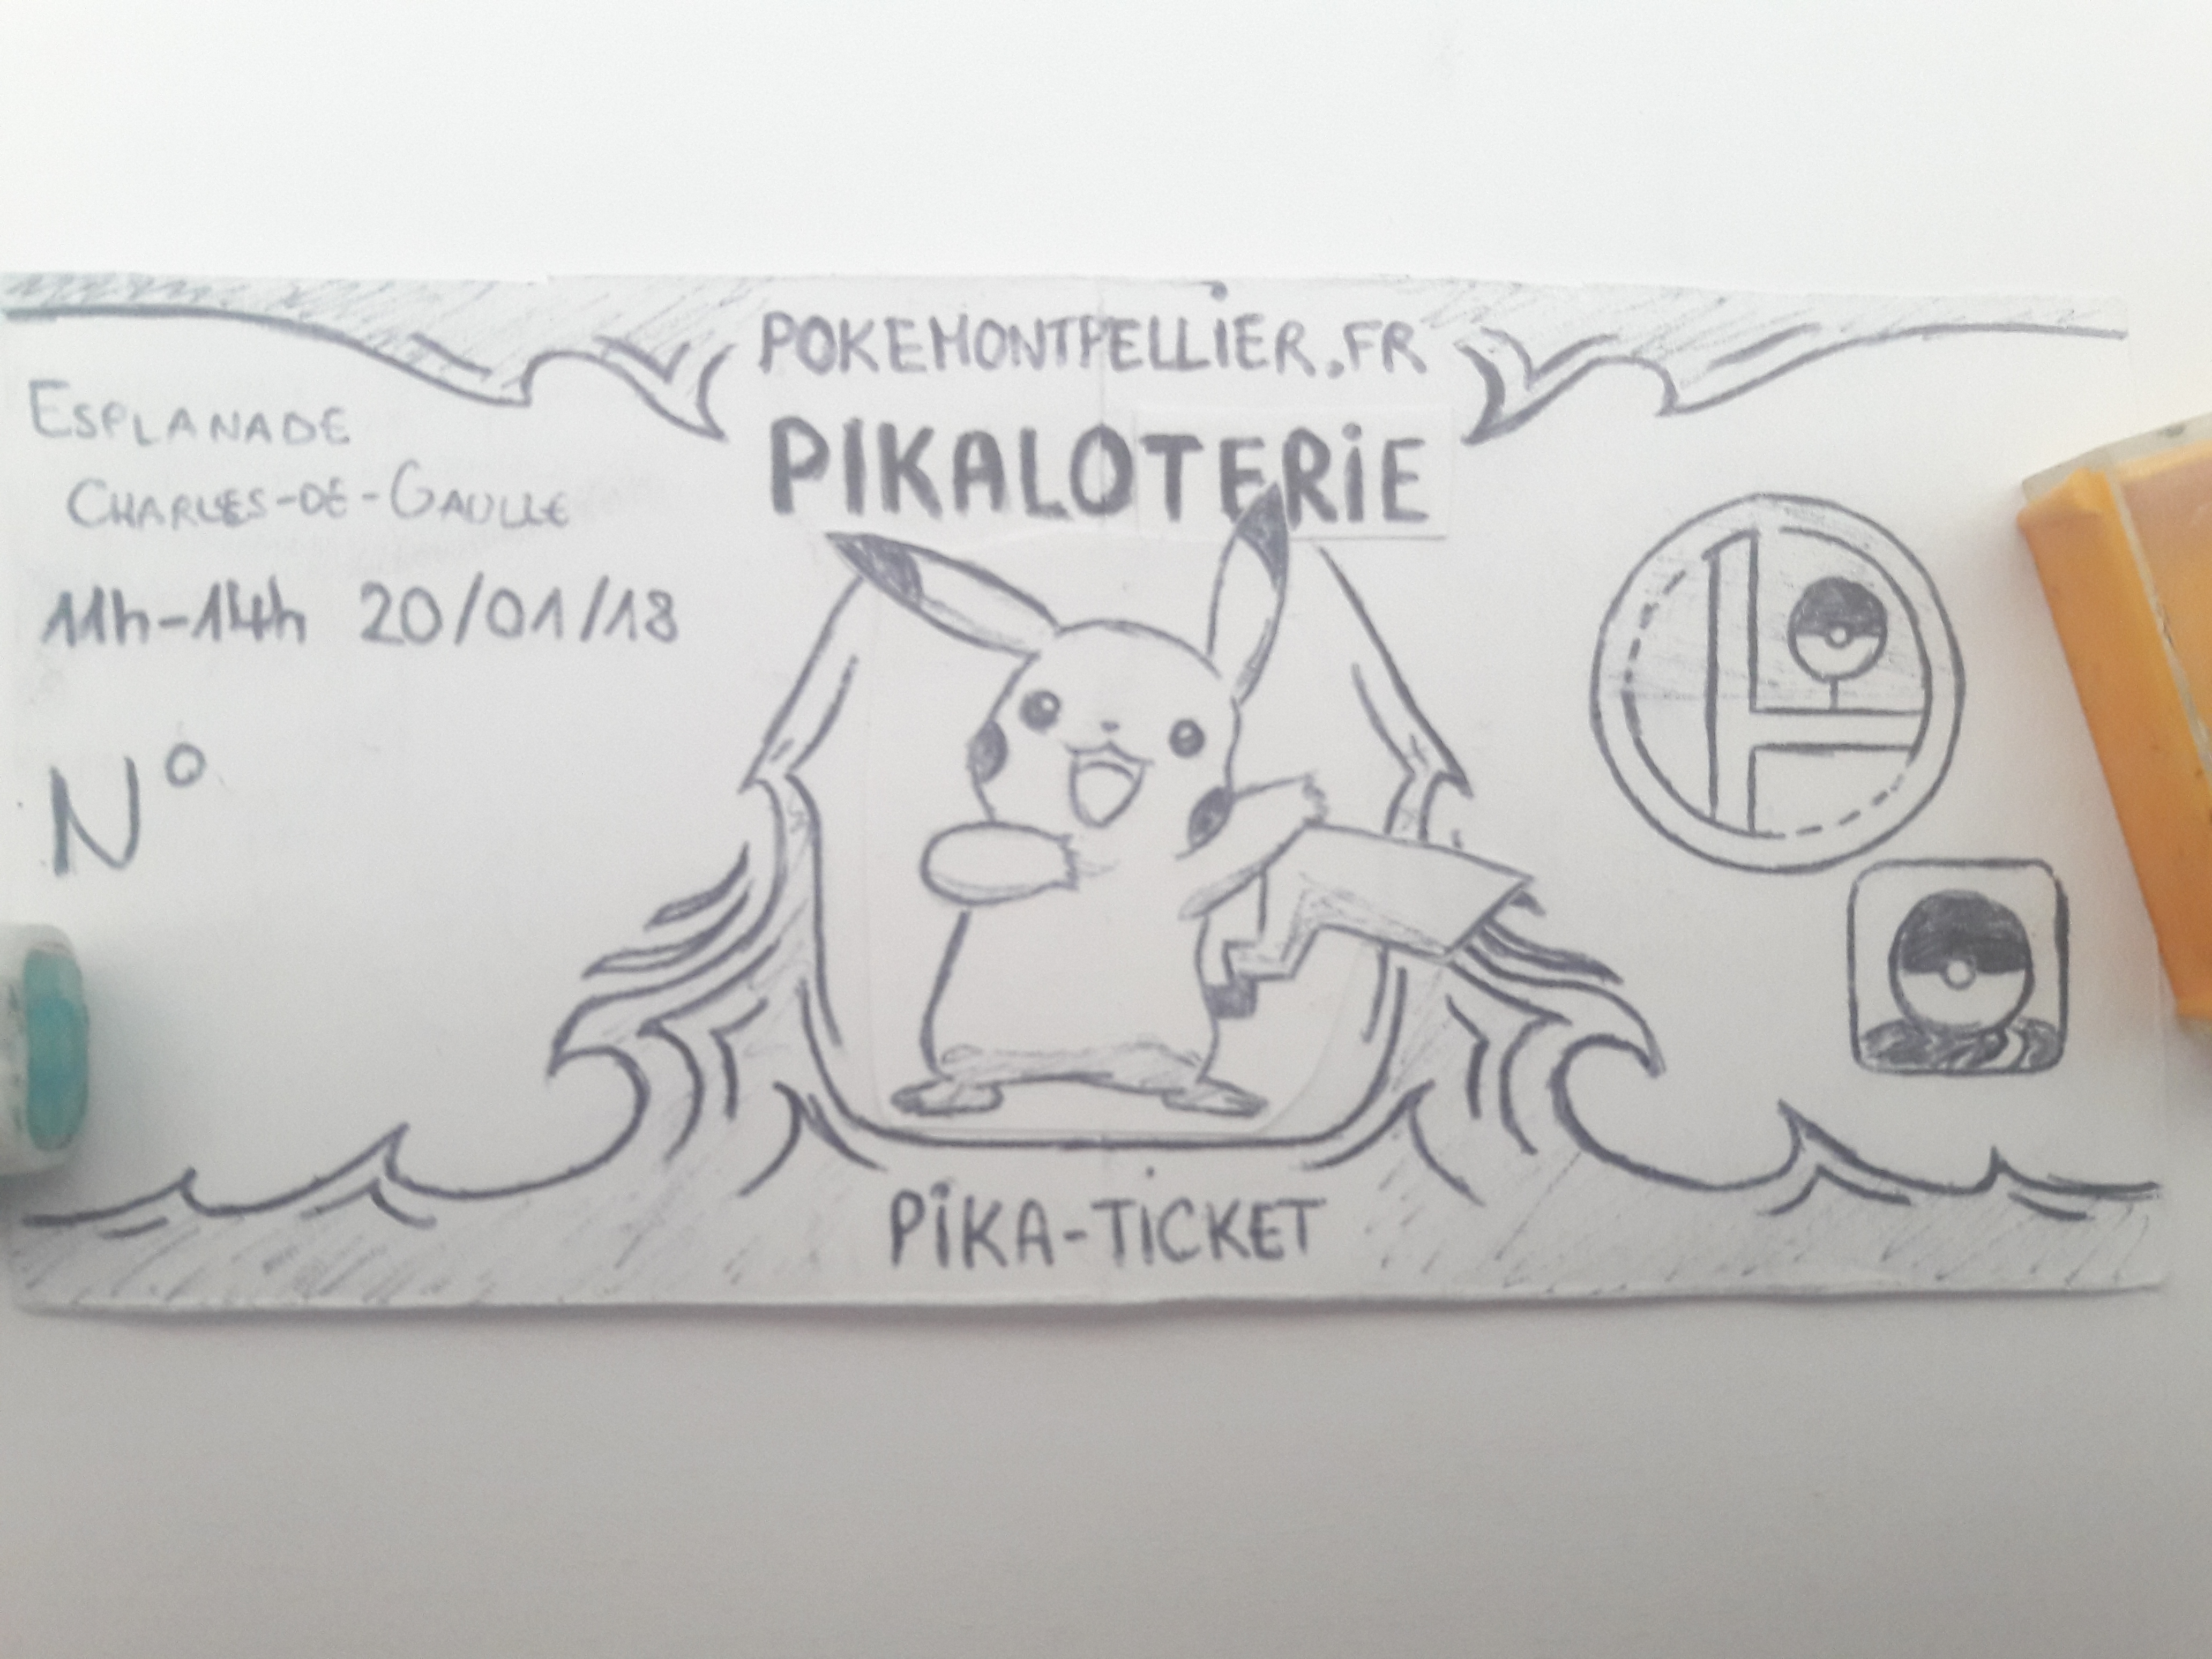 POKEMONTPELLIER.FR
PIKALOTERIE
ESPLANADE
CHARLES-DE-GAULLE
11h-14h 20/01/18
N°
PIKA-TICKET